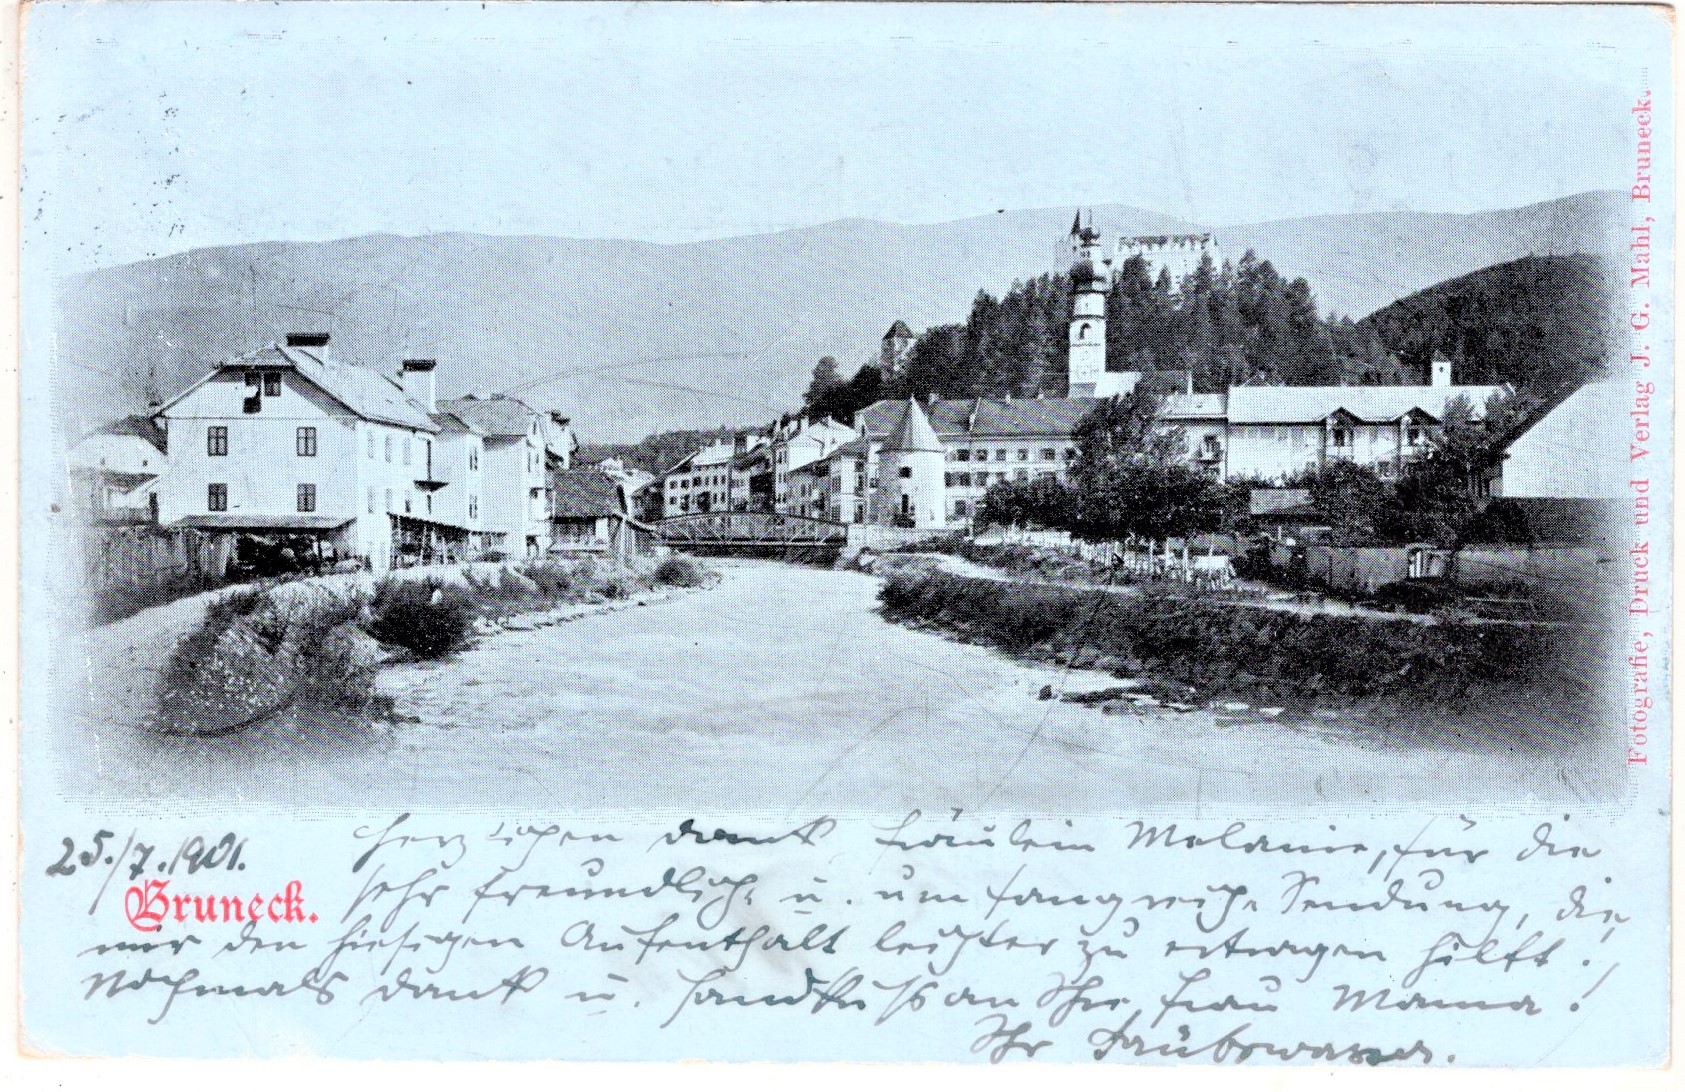 Fotografie, Druck und Verlag J. G. Mahl, Bruneck.
25./7.1901.
Bruneck.
Herzlichen Dank, Fräulein Melanie, für die
sehr freundliche u. umfangreiche Sendung, die
mir den hiesigen Aufenthalt leichter zu ertragen hilft!
Nochmals Dank u. Handkuß an Ihre Frau Mama!
Ihr